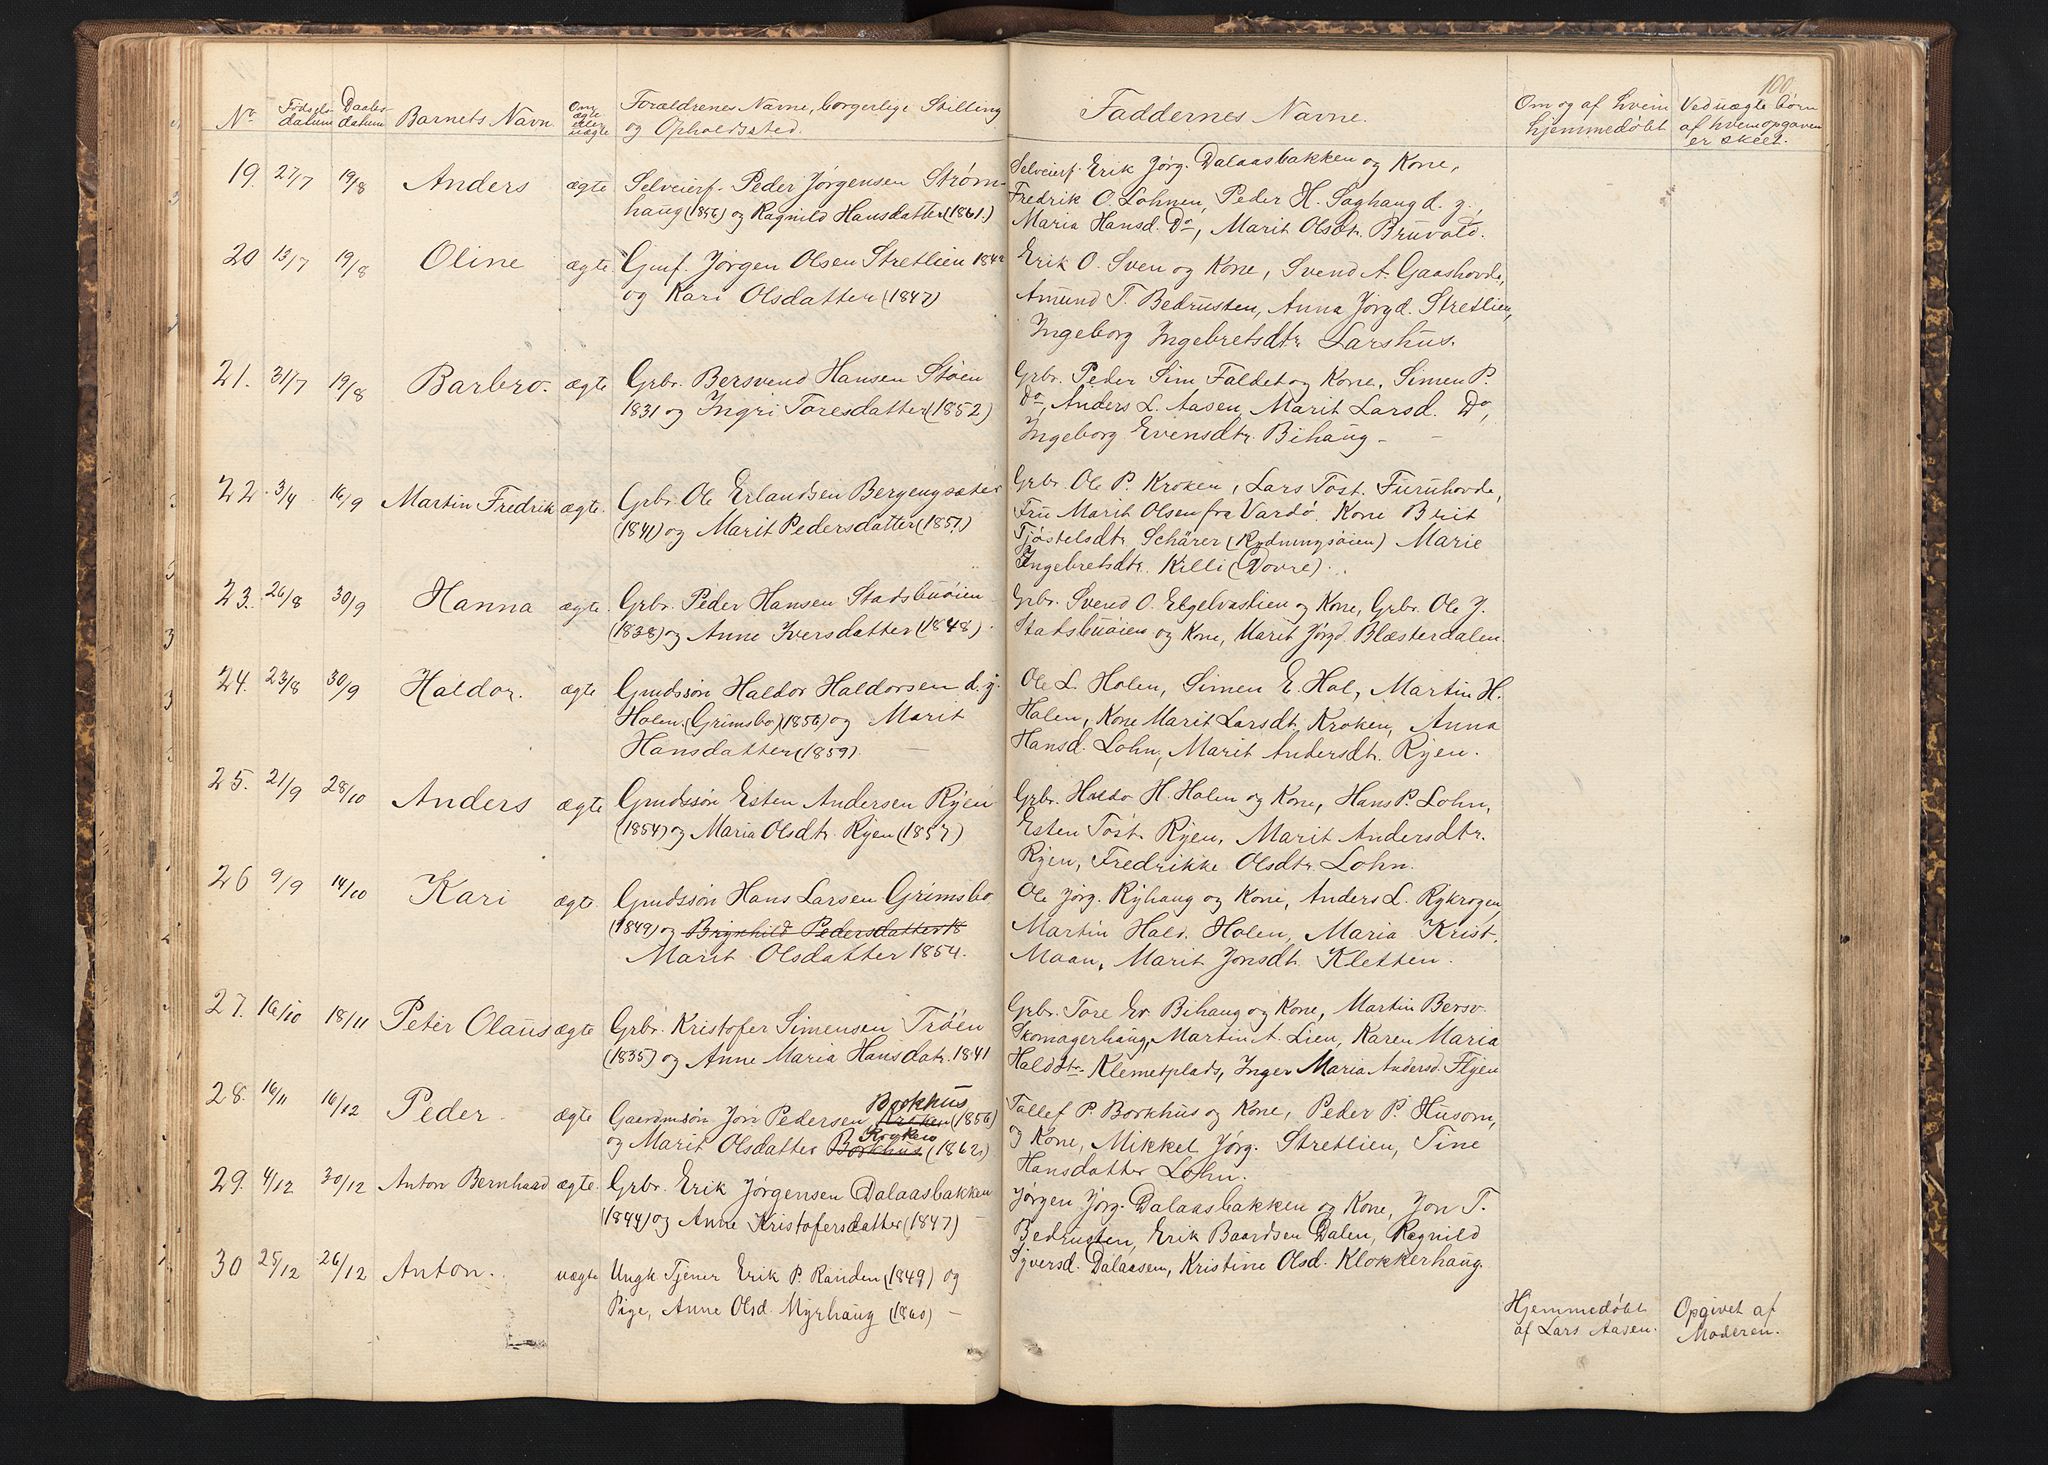 100
No Fødsels- datum Daabs- datum Barnets Navn Om ægte eller uægte Forældrenes Navne, borgerlige Stilling og Opholdssted. Faddernes Navne. Om og af hvem hjemmedøbt Ved uægte børn af hvem opgaven er skeet.
19. 27/7 19/8 Anders ægte Selveierf. Peder Jørgensen Strøm-
haug (1856) og Ragnild Hansdatter (1861.)
Selveierf. Erik Jørg. Dalaasbakken og Kone,
Fredrik O. Lohnen, Peder H. Saghaug d. y.,
Maria Hansd. Do, Marit Olsdtr. Bruvold.
20 13/7 19/8 Oline ægte Gmf. Jørgen Olsen Stretlien 1842
og Kari Olsdatter (1847)
Erik O. Sven og Kone, Svend A. Gaashovde,
Amund T. Bedrusten, Anna Jørgd. Stretlien,
Ingeborg Ingebretsdtr. Larshus.
21. 31/7 19/8 Barbro. ægte Grbr. Bersvend Hansen Støen
1831 og Ingri Toresdatter (1852)
Grbr. Peder Sim Faldet og Kone, Simen P.
Do, Anders L. Aasen, Marit Larsd. Do,
Ingeborg Evensdtr. Bihaug –
22. 3/9 16/9 Martin Fredrik ægte. Grbr. Ole Erlandsen Bergengsæter
(1841) og Marit Pedersdatter (1851)
Grbr. Ole P. Kroken, Lars Tost. Furuhovde,
Fru Marit Olsen fra Vardø. Kone Brit
Tjøstelsdtr. Schärer (Rydningsøien) Marie
Ingebretsdtr. Killi (Dovre).
23. 26/8 30/9 Hanna ægte. Grbr. Peder Hansen Stadsbuøien
(1838) og Anne Iversdatter (1848).
Grbr. Svend O. Elgelvastien og Kone, Grbr. Ole J.
Statsbuøien og Kone, Marit Jørgd. Blæsterdalen.
24. 23/8 30/9 Haldor. ægte Gmdssøn Haldor Haldorsen d. y.
Holen. (Grimsbo) (1856) og Marit
Hansdatter (1859).
Ole L. Holen, Simen E. Hol, Martin H.
Holen, Kone Marit Larsdt. Kroken, Anna
Hansd. Lohn, Marit Andersdtr. Ryen.
25. 21/9 28/10 Anders ægte Gmdssøn Esten Andersen Ryen
(1854) og Maria Olsdtr. Ryen (1857)
Grbr. Haldo H. Holen og Kone, Hans P. Lohn,
Esten Tost. Ryen, Marit Andersdtr.
Ryen, Fredrikke Olsdtr. Lohn.
26 9/9 14/10 Kari ægte. Gmdssøn Hans Larsen Grimsbo
(1849) og Brynhild Pedersdatter 18
Marit Olsdatter 1854.
Ole Jørg. Ryhaug og Kone, Anders L. Rykrogen,
Martin Hald. Holen, Maria Krist.
Moan, Marit Jonsdt. Kletten.
27. 16/10 18/11 Peter Olaus ægte Grbr. Kristofer Simensen Trøen
(1835) og Anne Maria Hansdatr. 1841
Grbr. Tore Ev. Bihaug og Kone, Martin Bersv.
Skomagerhaug, Martin A. Lien, Karen Maria
Haldtr. Klemetplads, Inger Maria Andersd. Flyen
28. 16/11 16/12 Peder. ægte Gaardmsøn Jon Pedersen Kroken Borkhus (1856)
og Marit Olsdatter Borkhus Kroken (1862)
Tollef P. Borkhus og Kone, Peder P. Husom,
og Kone, Mikkel Jørg. Stretlien, Tine
Hansdatter Lohn.
29. 4/12 30/12 Anton Bernhaad ægte. Grbr. Erik Jørgensen Dalaasbakken
(1844) og Anne Kristofersdatter (1847) –
Jørgen Jørg. Dalaasbakken og Kone, Jon T.
Bedrusten, Erik Baardsen Dalen, Ragnild
Syversd. Dalaasen, Kristine Olsd. Klokkerhaug.
30 25/12 26/12 Anton. uægte Ungk. Tjener Erik P. Randen (1849) og
Pige, Anne Olsd. Myrhaug (1860) –
Hjemmedøbt
af Lars Aasen.
Opgivet af
Moderen.